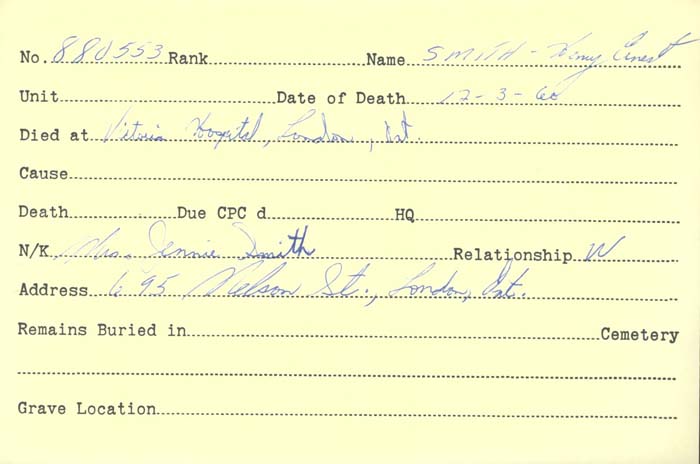 No. 880553 Rank Name SMITH - Henry Ernest
Unit Date of Death 12-3-60
Died at Vitoria Hospital, London, Ont.
Cause
Death Due CPC d HQ
N/K Mrs. Jennie Smith Relationship W
Address 695 Nelson St., London, Ont.
Remains Buried in Cemetery
Grave Location